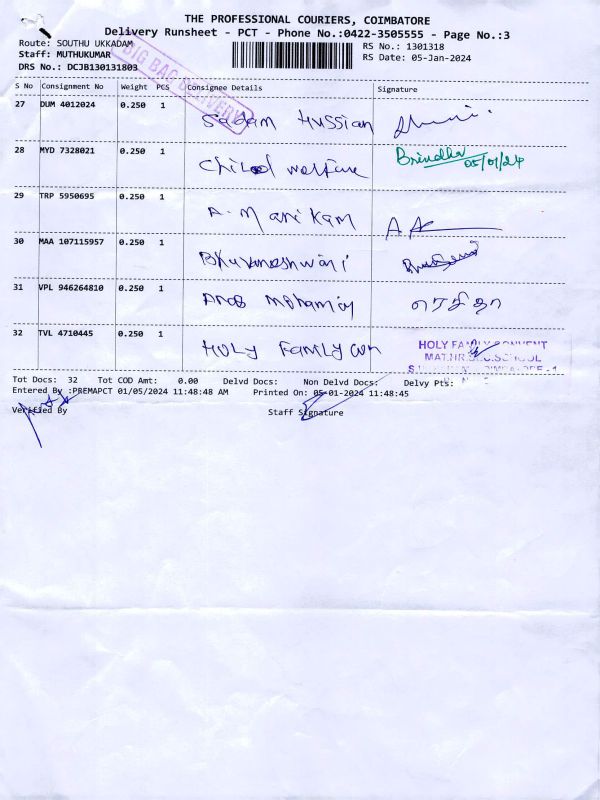 THE PROFESSIONAL COURIERS, COIMBATORE
Delivery Runsheet - PCT - Phone No.:0422-3505555 - Page No.:3
Route: SOUTHU UKKADAM
RS No.: 1301318
Staff: MUTHUKUMAR
RS Date: 05-Jan-2024
DRS No.: DCJB130131803
BIG BAG DELIVERY
S No Consignment No Weight PCS Consignee Details Signature
27 DUM 4012024 0.250 1 Saddam Hussian
28 MYD 7328021 0.250 1 Child welfare Brindha 05/01/24
29 TRP 5950695 0.250 1 A. Manikam
30 MAA 107115957 0.250 1 Bhuvaneshwari
31 VPL 946264810 0.250 1
32 TVL 4710445 0.250 1 HOLY Family con
HOLY FAMILY CONVENT
Tot Docs: 32 Tot COD Amt: 0.00 Delvd Docs: Non Delvd Docs: Delvy Pts:
Entered By :PREMAPCT 01/05/2024 11:48:48 AM Printed On: 05-01-2024 11:48:45
Verified By Staff Signature